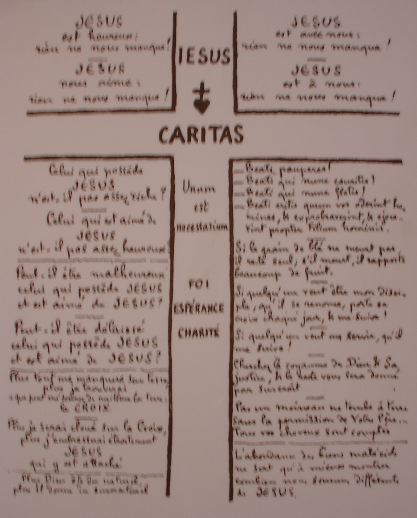 JÉSUS
est heureux:
rien ne nous manque!
JÉSUS
nous aime:
rien ne nous manque!
IESUS
JÉSUS
est avec nous:
rien ne nous manque!
JÉSUS
est à nous:
rien ne nous manque!
CARITAS
Celui qui possède
JÉSUS
n'est-il pas assez riche?
Celui qui est aimé de
JÉSUS
n'est-il pas assez heureux
Peut-il être malheureux
celui qui possède JÉSUS
et est aimé de JÉSUS?
Peut-il être délaissé
celui qui possède JÉSUS
et est aimé de JÉSUS?
Plus tout me manquera sur terre
plus je trouverai
ce que peut me donner de meilleur la terre:
la CROIX
Plus je serai cloué sur la Croix,
plus j'embrasserai étroitement
JÉSUS
qui y est attaché
Plus Dieu ôte du naturel,
plus il donne du surnaturel
Unum
est
necessarium
FOI
ESPÉRANCE
CHARITÉ
Beati pauperes!
Beati qui nunc esuritis!
Beati qui nunc fletis!
Beati eritis quum vos oderint ho-
mines, & exprobraverint, & ejece-
rint propter Filium hominis.
Si le grain de blé ne meurt pas,
il reste seul, s'il meurt, il rapporte
beaucoup de fruit.
Si quelqu'un veut être mon disci-
ple, qu'il se renonce, porte sa
croix chaque jour, & me suive!
Si quelqu'un veut me servir, qu'il
me suive!
Cherchez le royaume de Dieu & Sa
justice, & le reste vous sera donné
par surcroît
Pas un moineau ne tombe à terre
sans la permission de Votre Père...
Tous vos cheveux sont comptés
L'abondance des biens matériels
ne sert qu'à mieux montrer
combien nous sommes différents
de JÉSUS.